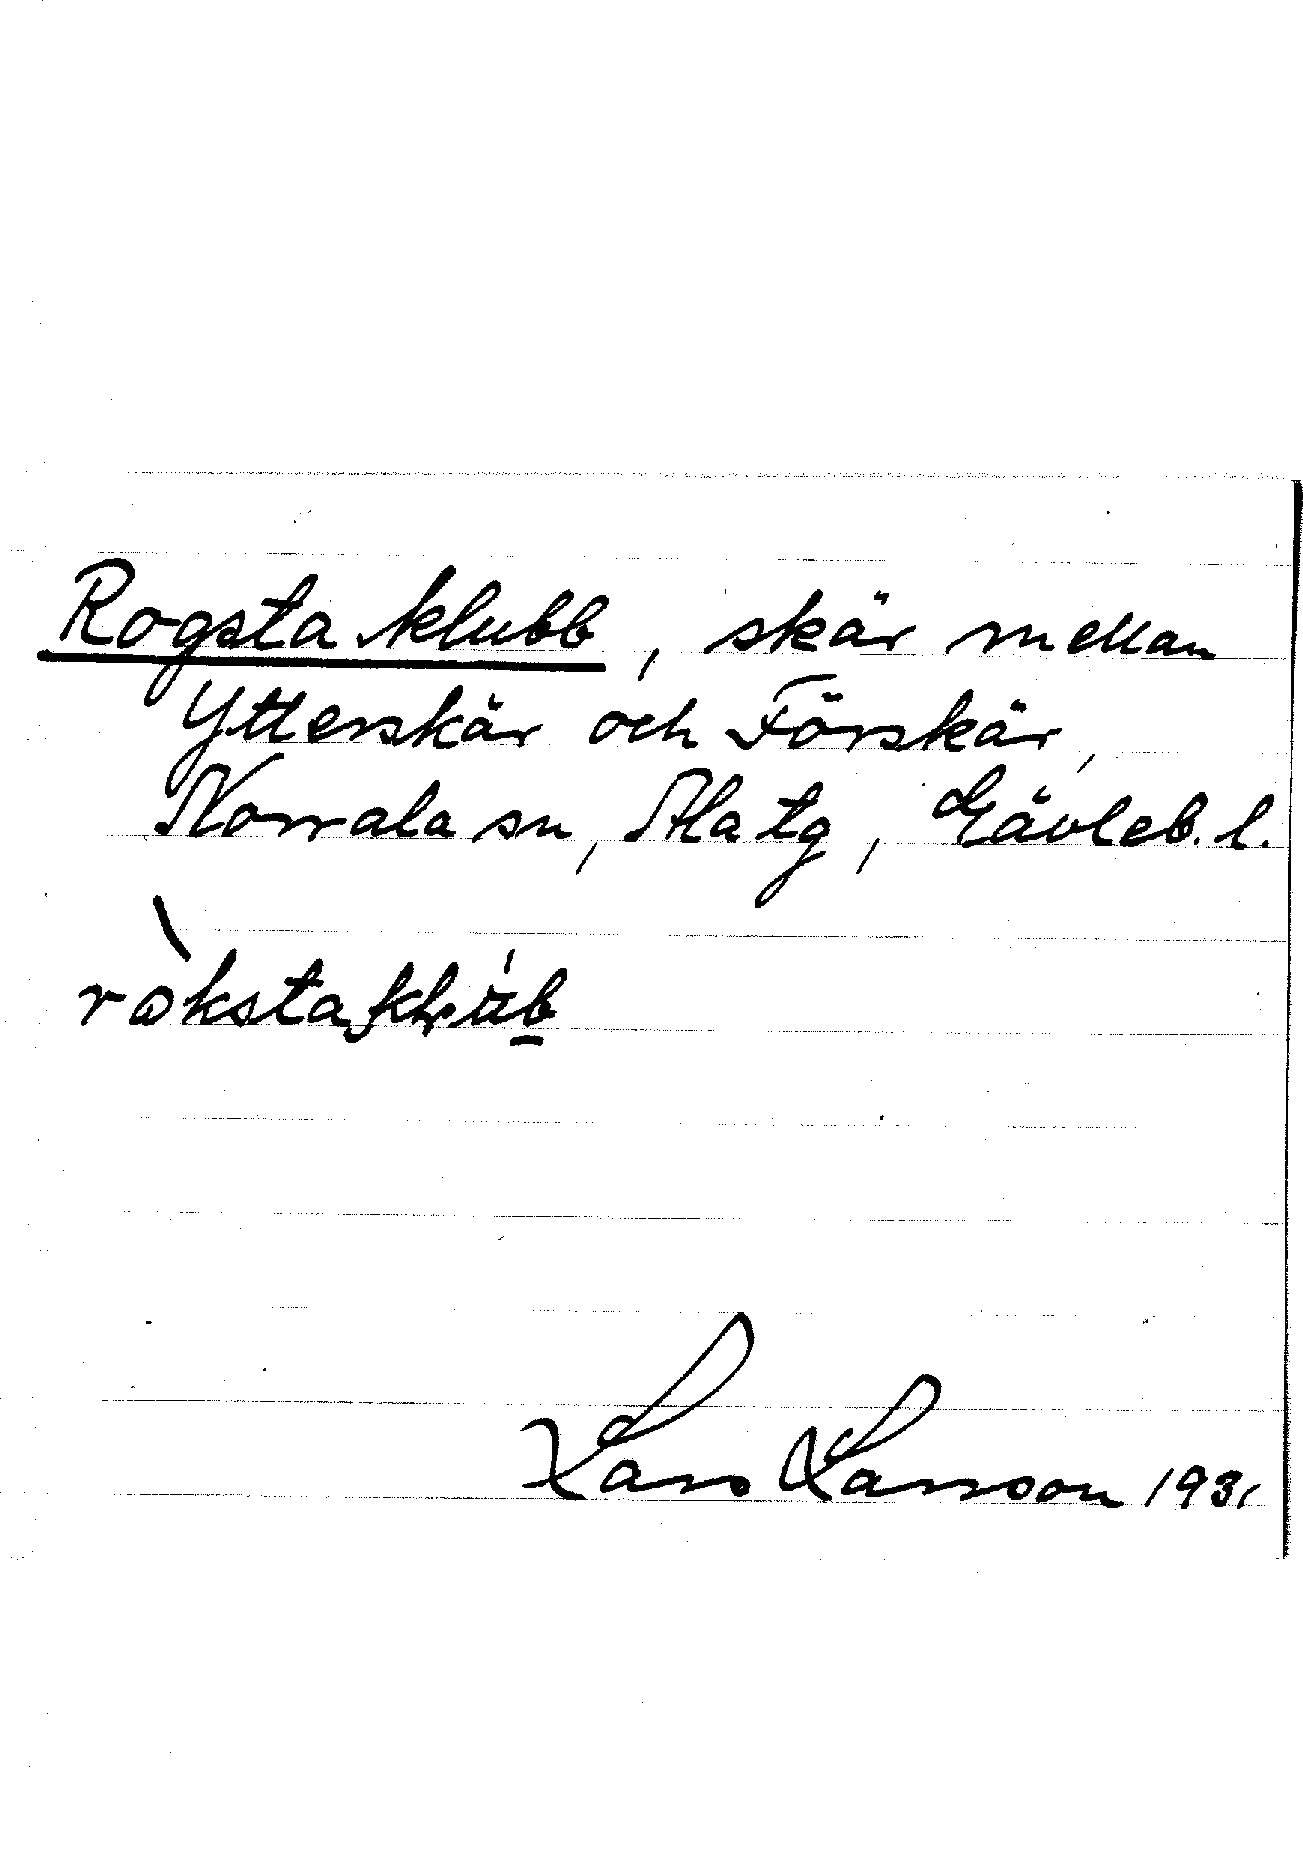 Rogsta klubb, skär mellan
Ytterskär och Förskär,
Norrala sn, Ala tg, Gävleb. l.
Lars Larsson 1931